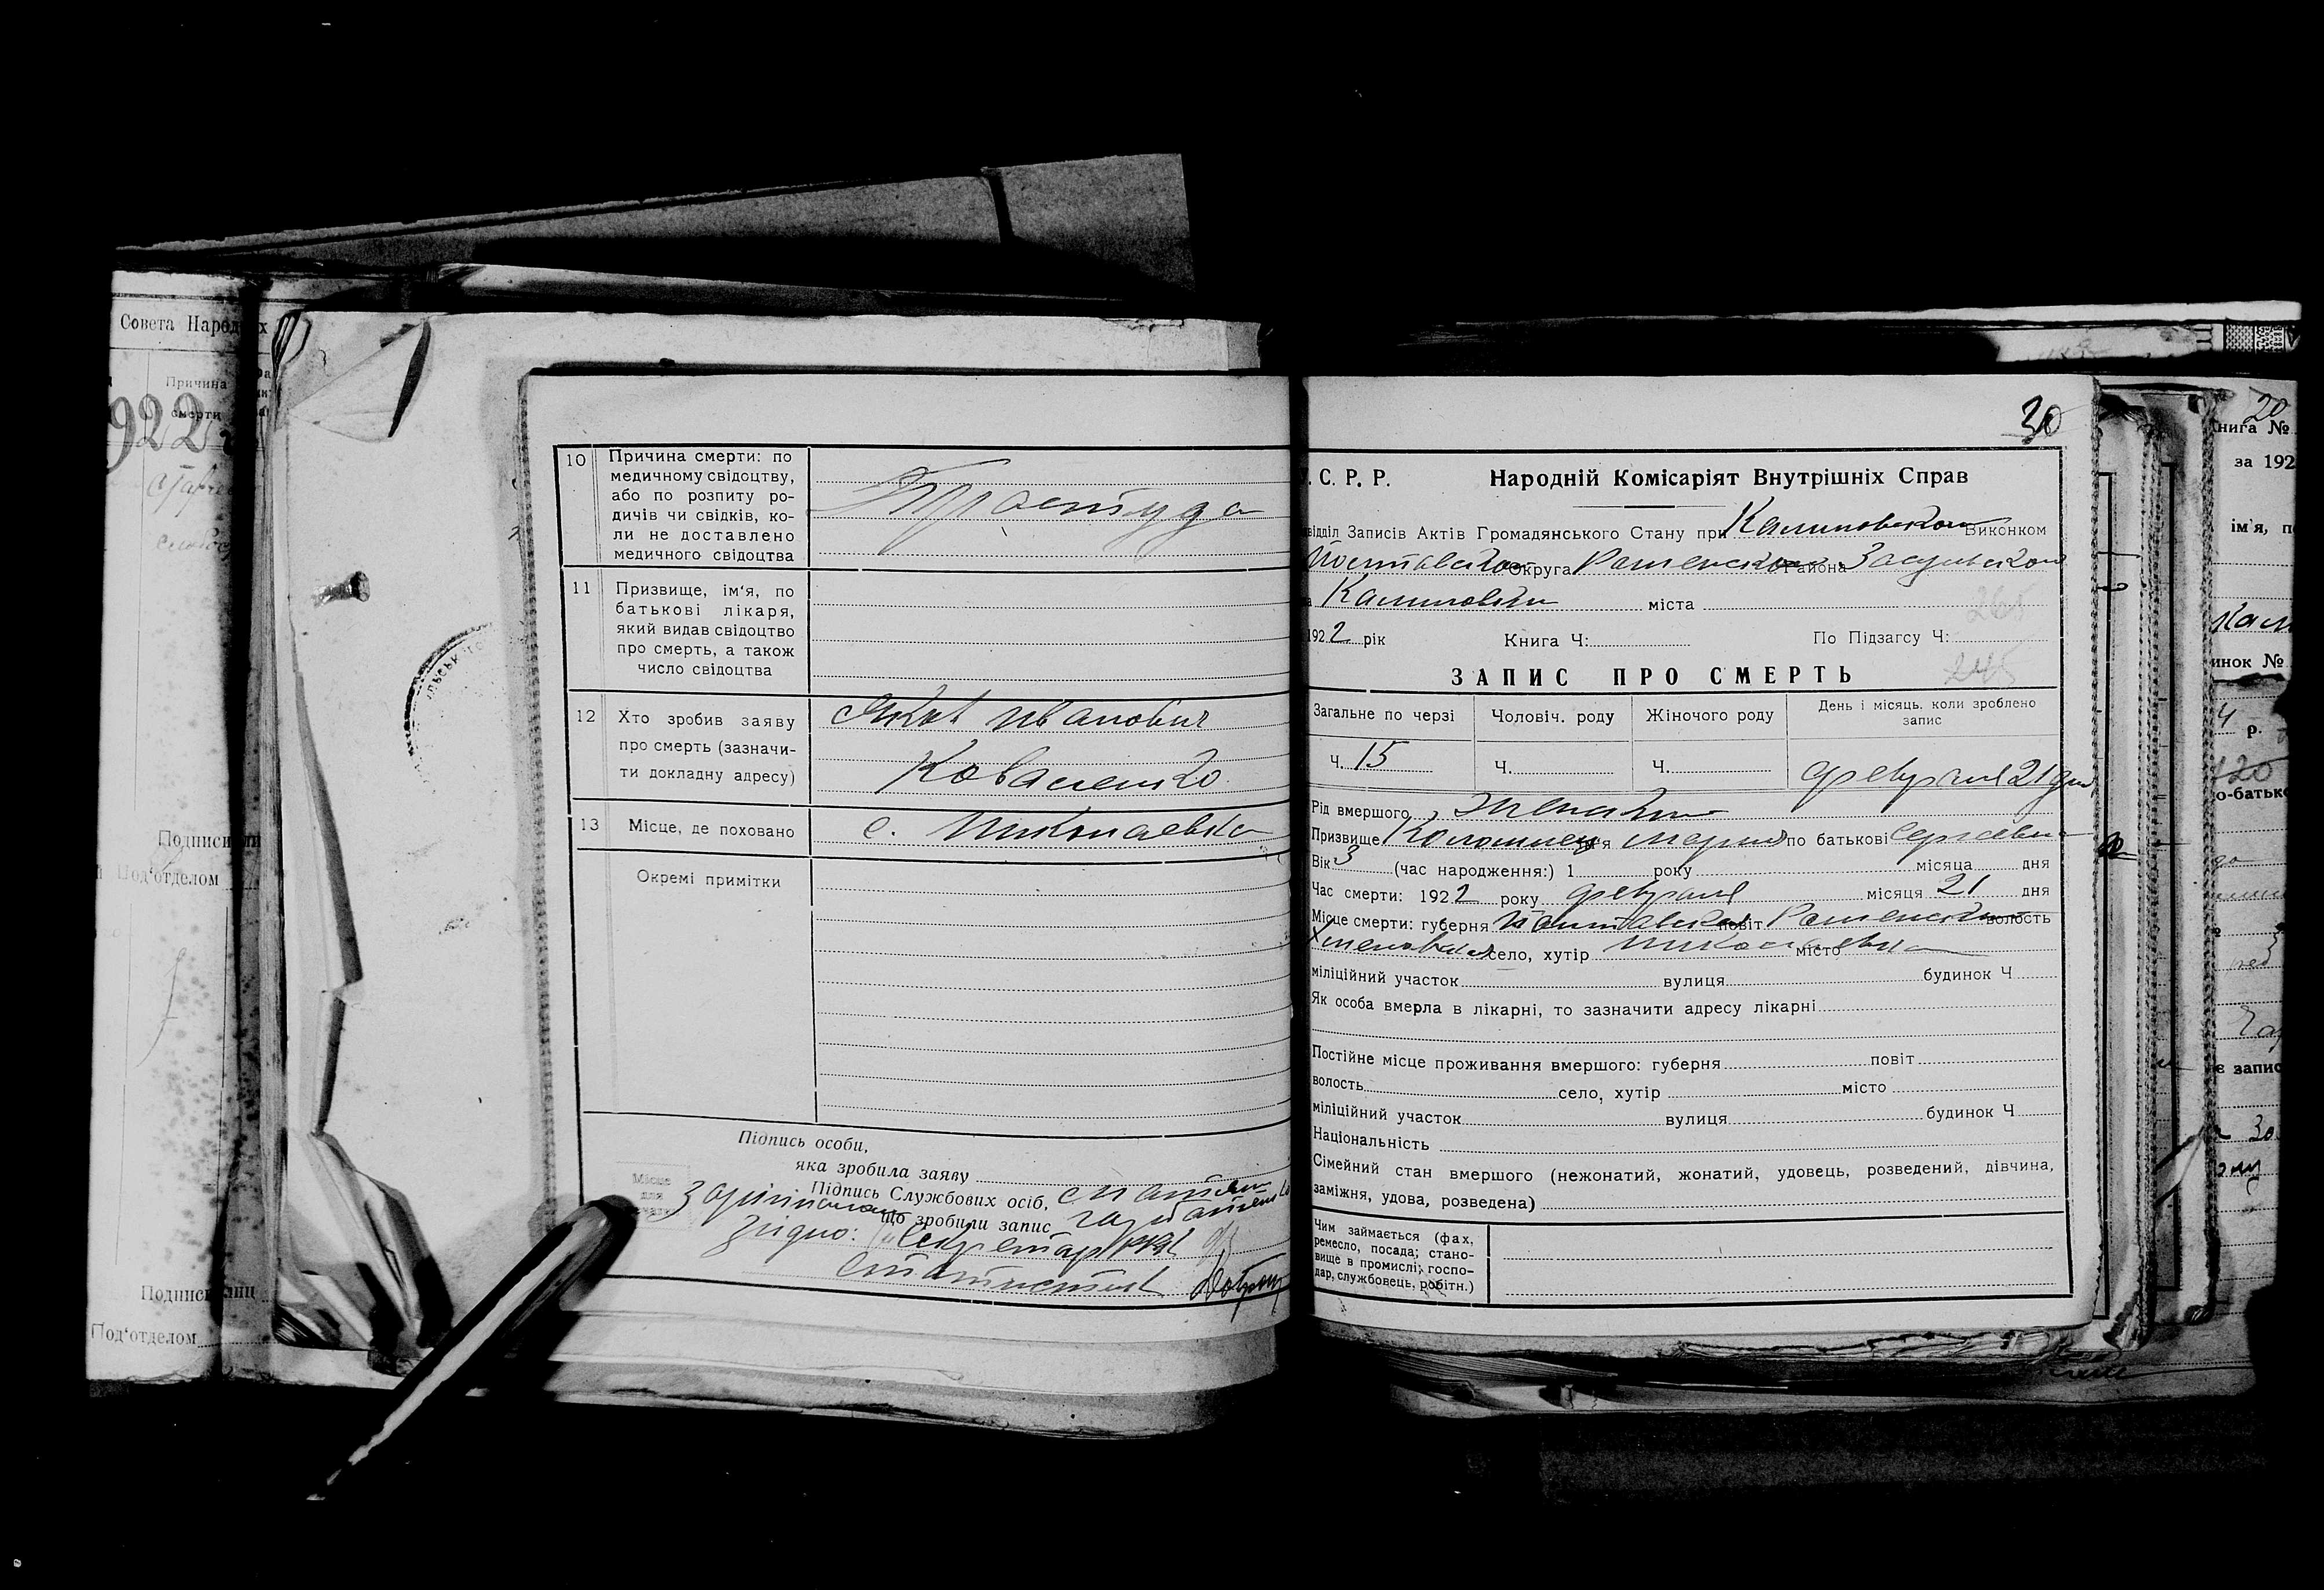 Совета Народных
Причина
смерти
922
Подписи
Под‘отделом
Подписи лиц
Под‘отделом
10 Причина смерти: по
медичному свідоцтву,
або по розпиту ро-
дичів чи свідків, ко-
ли не доставлено
медичного свідоцтва
Простуда
11 Призвище, ім‘я, по
батькові лікаря,
який видав свідоцтво
про смерть, а також
число свідоцтва
12 Хто зробив заяву
про смерть (зазначи-
ти докладну адресу)
Яков Иванович
Коваленко
13 Місце, де поховано с. Николаевка
Окремі примітки
Підпись особи,
яка зробила заяву
Місце
для
Підпись Службових осіб,
що зробили запис
З оригіналом
згідно: Секретар
статистик
30
С. Р. Р. Народній Комісаріят Внутрішніх Справ
відділ Записів Актів Громадянського Стану при Калиновском Виконком
Полтавского Округа Роменского Района Засульского
Калиновки міста
265
1922 рік Книга Ч: По Підзагсу Ч:
245
ЗАПИС ПРО СМЕРТЬ
Загальне по черзі Чоловіч. роду Жіночого роду День і місяць. коли зроблено
запис
Ч. 15 Ч. Ч. февраля 21 дня
Рід вмершого женский
Призвище Коломиец ім‘я Мария по батькові Сергеевна
Вік 3 (час народження:) 1 року місяца дня
Час смерти: 1922 року февраля місяця 21 дня
Місце смерти: губерня Полтавская повіт Роменский волость
село, хутір Николаевка місто
міліційний участок вулиця будинок Ч
Як особа вмерла в лікарні, то зазначити адресу лікарні
Постійне місце проживання вмершого: губерня повіт
волость село, хутір місто
міліційний участок вулиця будинок Ч
Національність
Сімейний стан вмершого (нежонатий, жонатий, удовець, розведений, дівчина,
заміжня, удова, розведена)
Чим займається (фах,
ремесло, посада; стано-
вище в промислі; госпо-
дар, службовець, робітн.)
20
Книга №
за 192
ім‘я, п
Кали
инок №
р.
120
о-батько
є запис